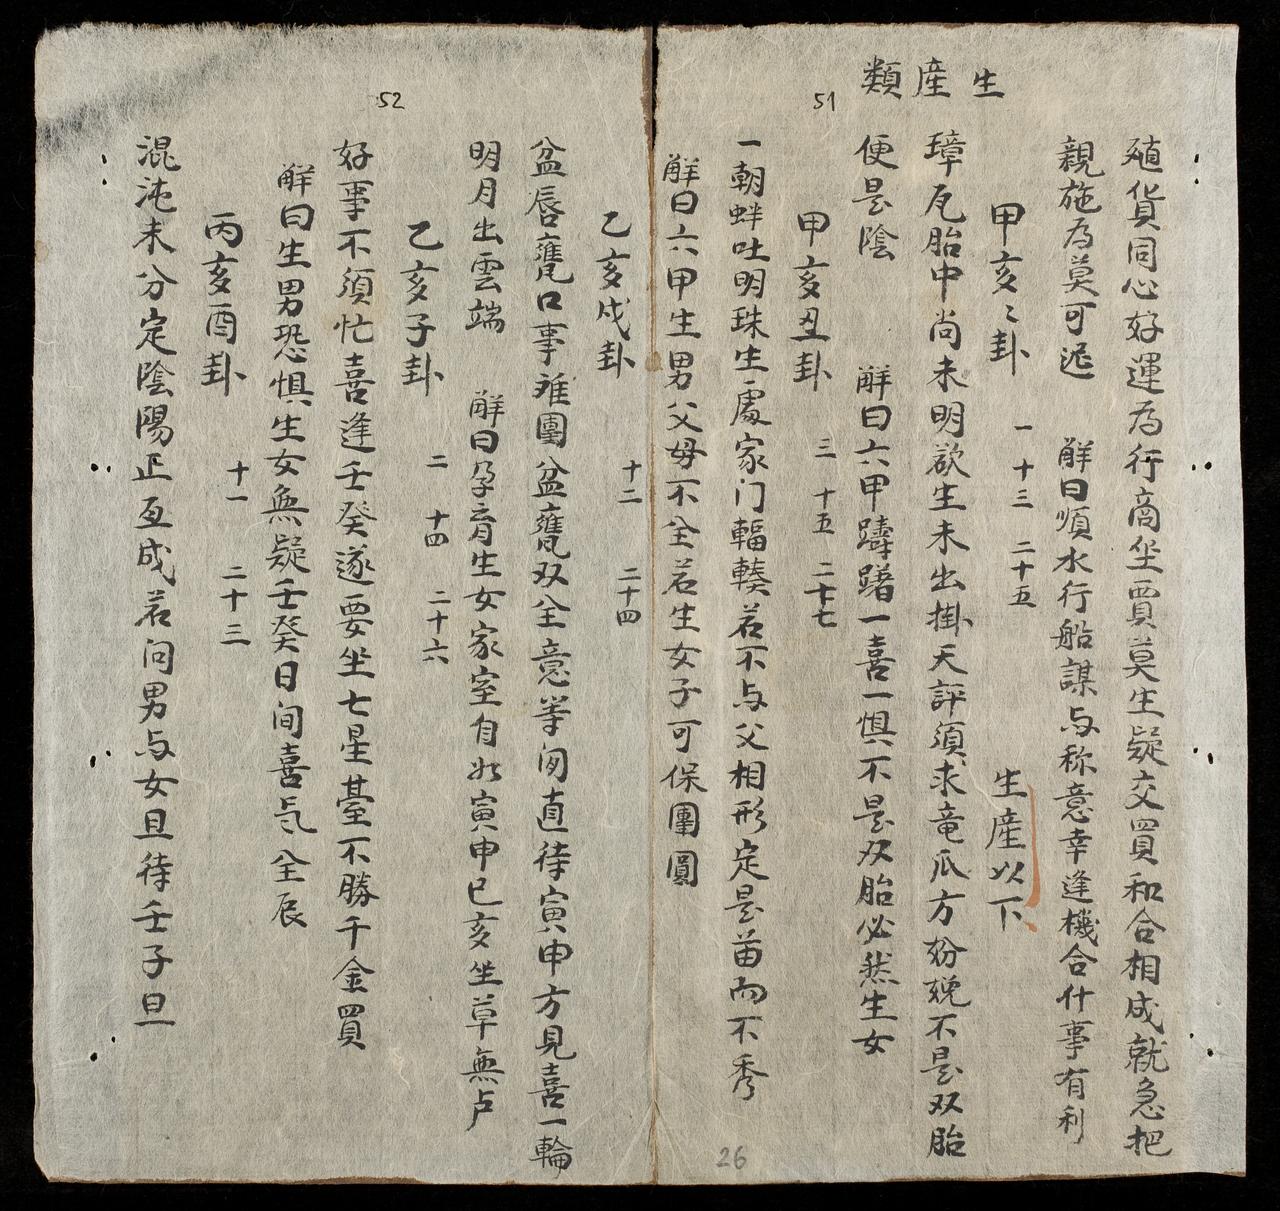 生産類
51
殖貨同心好運為行商坐賈莫生疑交買和合相成就急把
親施為莫可遲　解曰順水行船謀与称意幸逢機合什事有利
甲亥〻卦　一　十三　二十五　生産以下
璋瓦胎中尚未明欲生未出掛天評須求竜瓜方㛃娩不是双胎
便是陰　解曰六甲躊躇一喜一惧不是双胎必然生女
甲亥丑卦　三　十五　二十七
一朝蚌吐明珠生處家门輻輳若不与父相形定是苗而不秀
解曰六甲生男父母不全若生女子可保團圓
26
52
乙亥戌卦　十二　二十四
盆唇甕口事难團盆甕双全意等间直待寅申方見喜一輪
明月出雲端　解曰孕育生女家室自如寅申巳亥坐草無卢
乙亥子卦　二　十四　二十六
好事不須忙喜逢壬癸遂要坐七星䑓不勝千金買
解曰生男恐惧生女無疑壬癸日间喜气全辰
丙亥酉卦　十一　二十三
混沌未分定陰陽正亙成若问男与女且待壬子旦